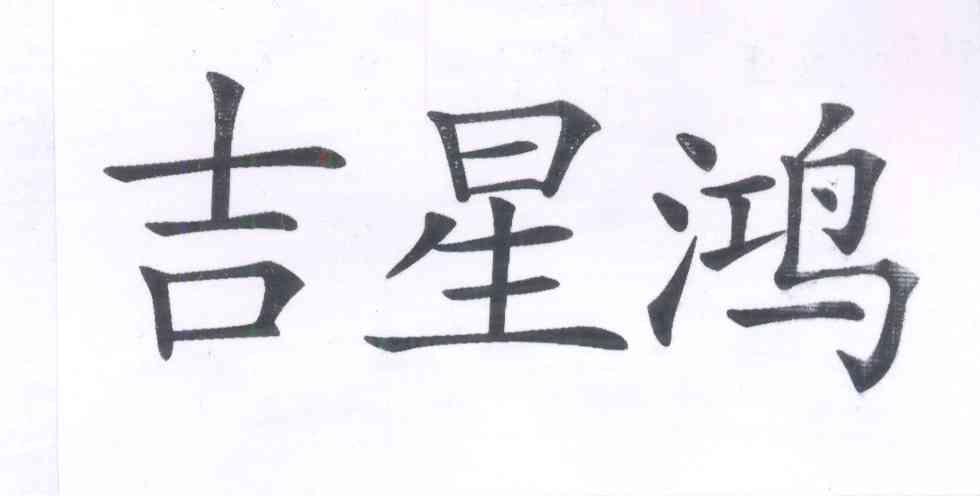 吉星鸿